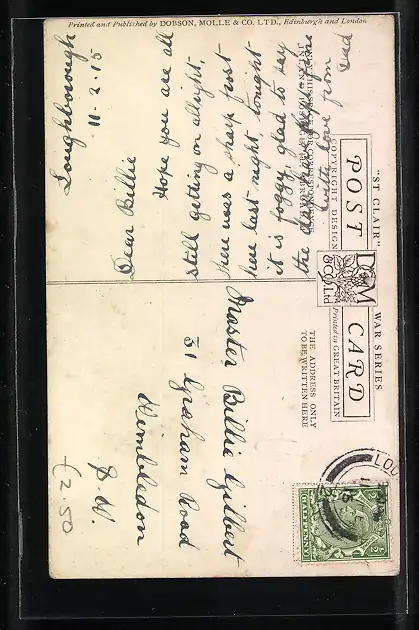 Printed and Published by DOBSON, MOLLE & CO. LTD., Edinburgh and London
"ST CLAIR" WAR SERIES
POST CARD
COPYRIGHT DESIGN
Printed in GREAT BRITAIN
D M
& Co. Ltd
THE ADDRESS ONLY
TO BE WRITTEN HERE
Loughborough
11-2-15
Dear Billie
Hope you are all
still getting on allright.
There was a sharp frost
here last night tonight
it is foggy, glad to say
the
with love from
Dad
Master Billie Gilbert
31 Graham Road
Wimbledon
S. W.
£2.50
LOU
HALFPENNY